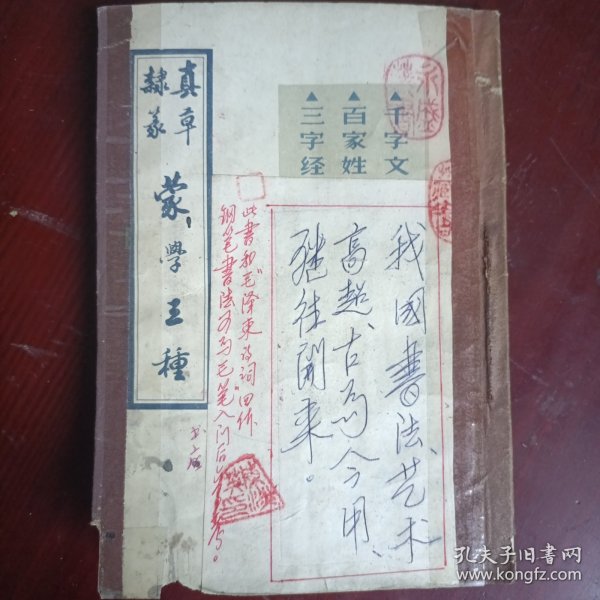 真草
隸篆
蒙學三種
▲千字文
▲百家姓
▲三字经
我國書法艺术
高超、古為今用、
继往開来。
此書和毛泽东诗词田作
钢笔書法可為毛笔入门
孔夫子旧书网
www.kongfz.com